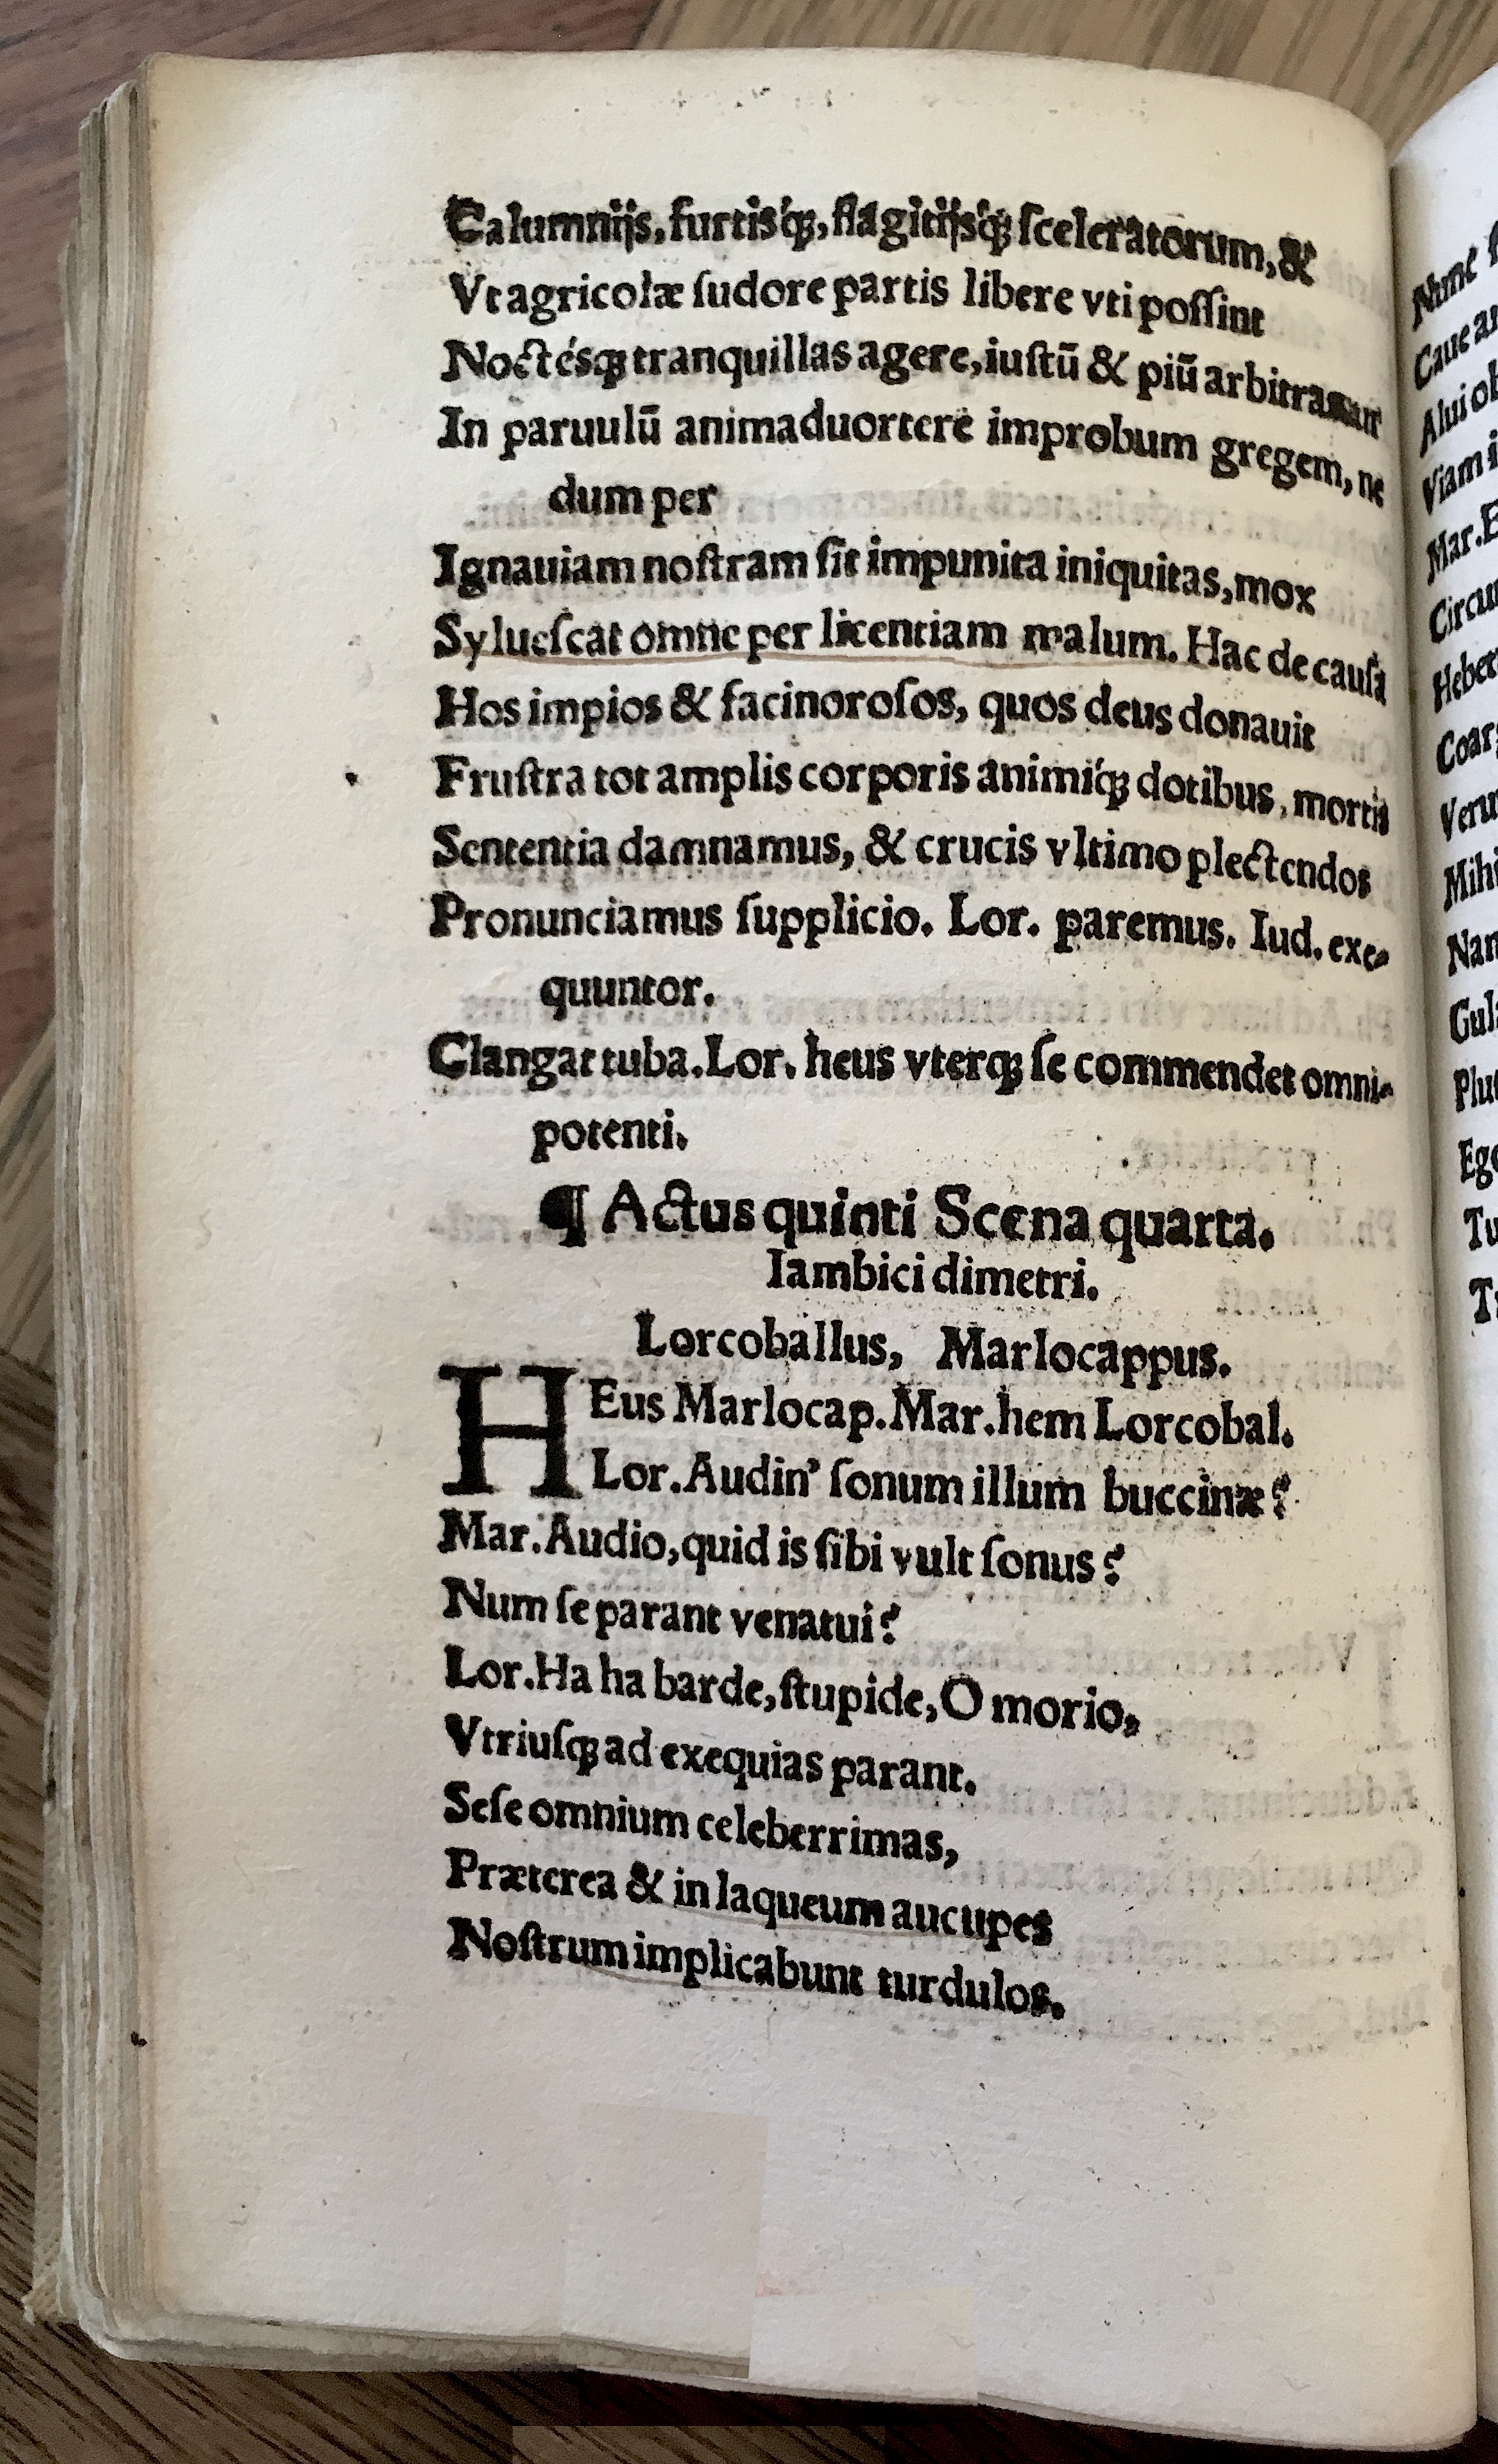 Calumnijs, furtisq́ꝫ, flagitijsq́ꝫ ſceleratorum, &
Vt agricolæ ſudore partis libere vti poſſint
Noctésqꝫ tranquillas agere, iuſtū & piū arbitramur
In paruulū animaduortere improbum gregem, ne
dum per
Ignauiam noſtram ſit impunita iniquitas, mox
Sylueſcat omne per licentiam malum. Hac de cauſa
Hos impios & facinoroſos, quos deus donauit
Fruſtra tot amplis corporis animiq́ꝫ dotibus, mortis
Sententia damnamus, & crucis vltimo plectendos
Pronunciamus ſupplicio. Lor. paremus. Iud. exe-
quuntor.
Clangat tuba. Lor. heus vterqꝫ ſe commendet omni-
potenti.
¶ Actus quinti Scena quarta.
Iambici dimetri.
Lorcoballus, Marlocappus.
HEus Marlocap. Mar. hem Lorcobal.
Lor. Audin' ſonum illum buccinæ?
Mar. Audio, quid is ſibi vult ſonus?
Num ſe parant venatui?
Lor. Ha ha barde, ſtupide, O morio,
Vtriuſqꝫ ad exequias parant.
Seſe omnium celeberrimas,
Præterea & in laqueum aucupes
Noſtrum implicabunt turdulos.
Nunc
Mar.